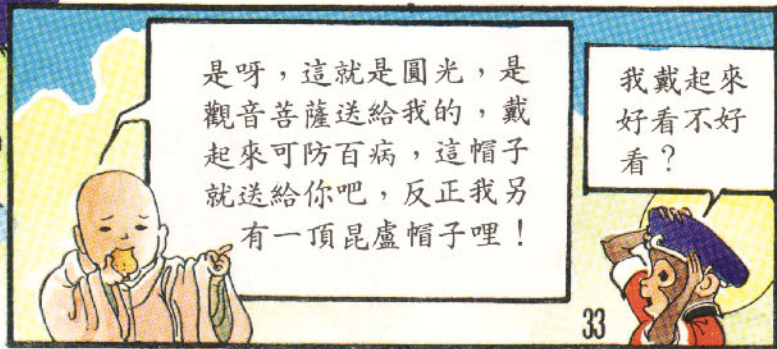 是呀，這就是圓光，是
觀音菩薩送給我的，戴
起來可防百病，這帽子
就送給你吧，反正我另
有一頂昆盧帽子哩！
我戴起來
好看不好
看？
33